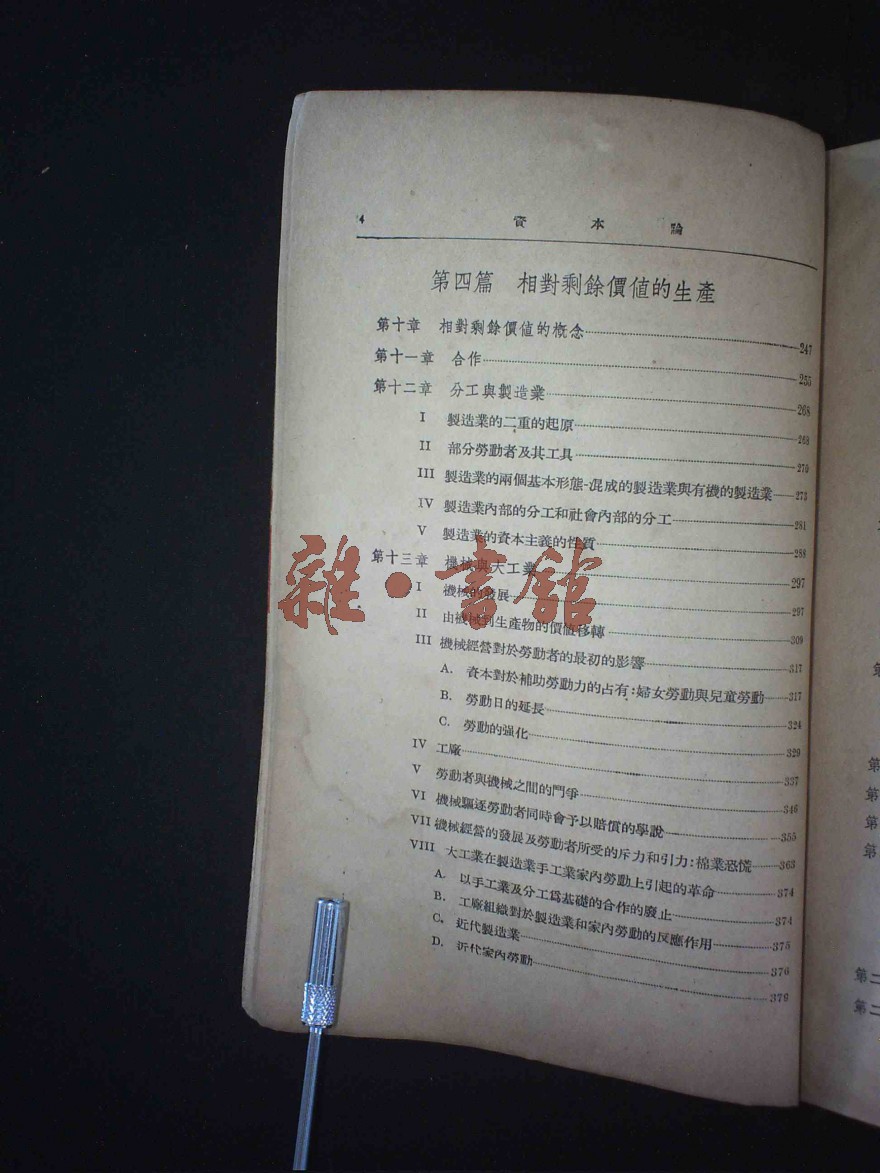 4 資本論
第四篇 相對剩餘價值的生產
第十章 相對剩餘價值的概念 247
第十一章 合作 255
第十二章 分工與製造業 268
I 製造業的二重的起原 268
II 部分勞動者及其工具 270
III 製造業的兩個基本形態-混成的製造業與有機的製造業 273
IV 製造業內部的分工和社會內部的分工 281
V 製造業的資本主義的性質 288
第十三章 機械與大工業 297
I 機械的發展 297
II 由機械到生產物的價值移轉 309
III 機械經營對於勞動者的最初的影響 317
A. 資本對於補助勞動力的占有:婦女勞動與兒童勞動 317
B. 勞動日的延長 324
C. 勞動的强化 329
IV 工廠 337
V 勞動者與機械之間的鬥爭 346
VI 機械驅逐勞動者同時會予以賠償的學說 355
VII 機械經營的發展及勞動者所受的斥力和引力:棉業恐慌 363
VIII 大工業在製造業手工業家內勞動上引起的革命 374
A. 以手工業及分工爲基礎的合作的廢止 374
B. 工廠組織對於製造業和家內勞動的反應作用 375
C. 近代製造業 376
D. 近代家內勞動 379
雜·書館
第
第
第
第
第
第二
第二